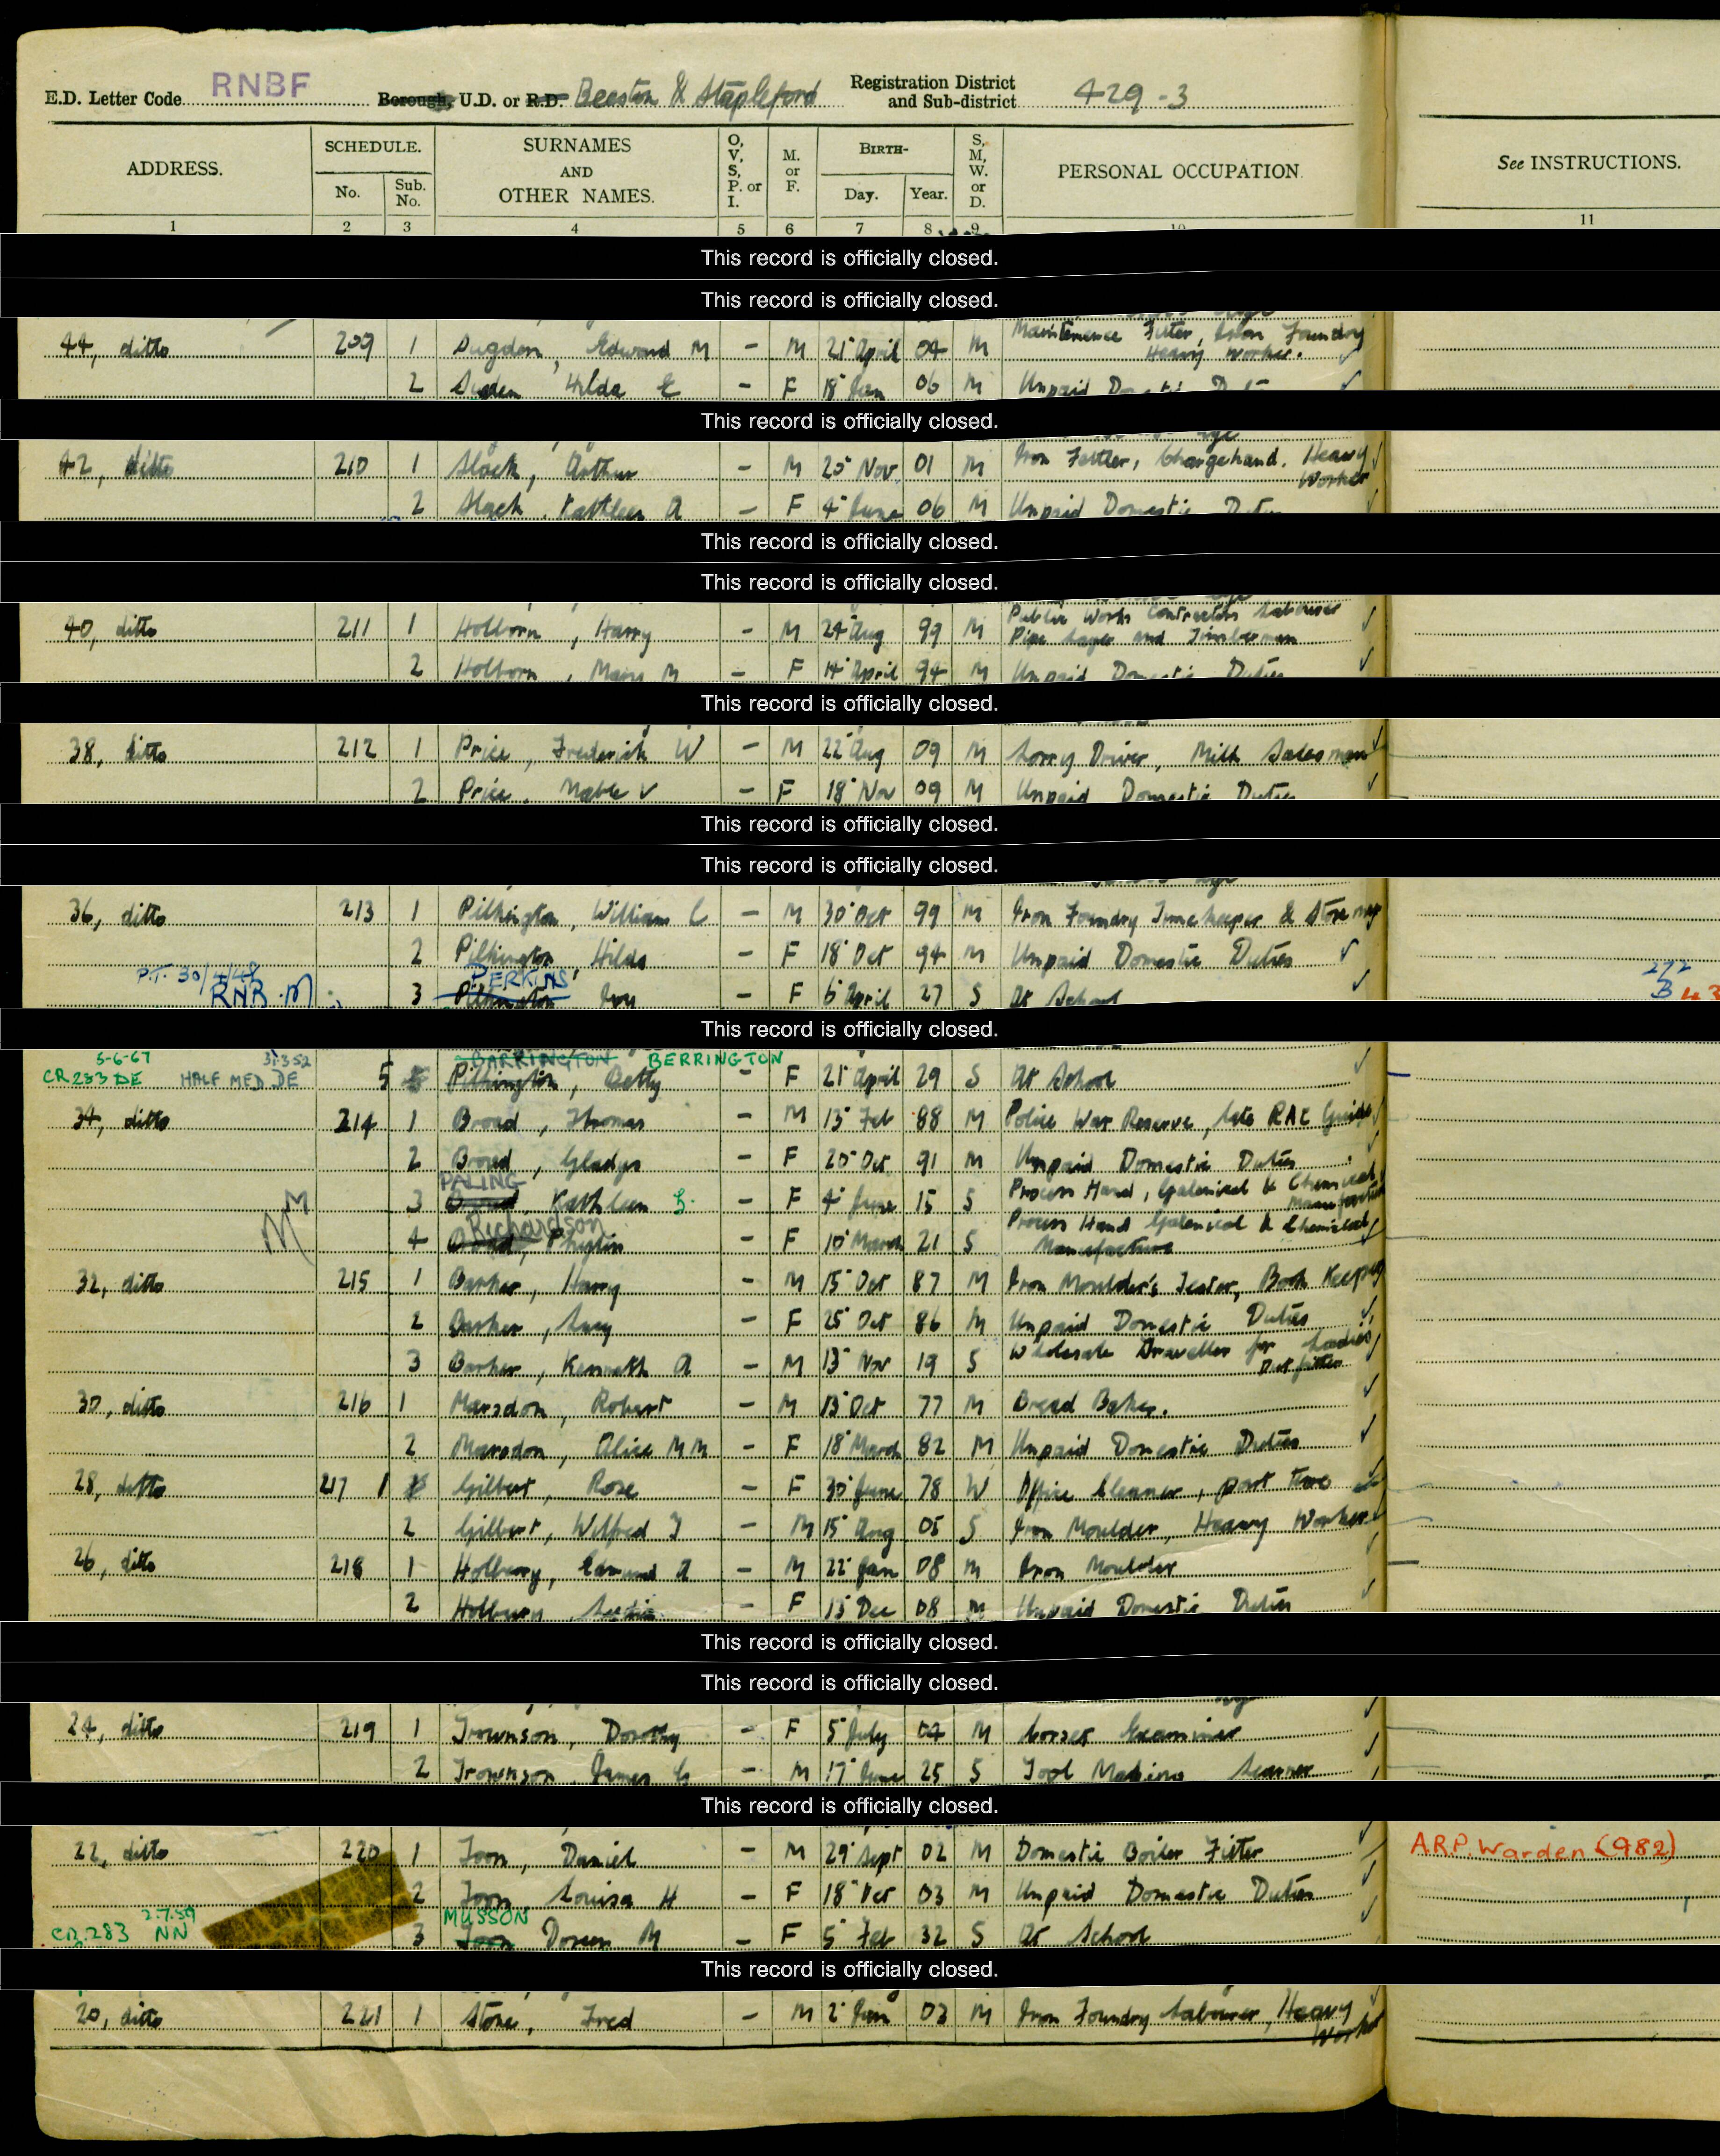 E.D. Letter Code RNBF Borough, U.D. or R.D. Beeston & Stapleford Registration District and Sub-district 429-3
ADDRESS. SCHEDULE. No. Sub. No. SURNAMES AND OTHER NAMES. O, V, S, P. or I. M. or F. BIRTH- Day. Year. S, M, W. or D. PERSONAL OCCUPATION. See INSTRUCTIONS.
1 2 3 4 5 6 7 8 9 10 11
This record is officially closed.
This record is officially closed.
44, ditto 209 1 Dugdon, Edward M - M 21 April 04 M Maintenance Fitter, Iron Foundry Heavy Worker.
2 Hilda E - F 18 Jan 06 M Unpaid
This record is officially closed.
42, ditto 210 1 Slack, Arthur - M 25 Nov 01 M Iron Fettler, Chargehand. Heavy Worker
2 Slack, Kathleen A - F 4 June 06 M Unpaid Domestic Duties
This record is officially closed.
This record is officially closed.
40, ditto 211 1 Holborn, Harry - M 24 Aug 99 M Public Works Contractors Labourer Pipe Layer and Timberman
2 Holborn, Mary M - F 14 April 94 M Unpaid Domestic Duties
This record is officially closed.
38, ditto 212 1 Price, Frederick W - M 22 Aug 09 M Lorry Driver, Milk Salesman
2 Price, Mable V - F 18 Nov 09 M Unpaid Domestic Duties
This record is officially closed.
This record is officially closed.
36, ditto 213 1 Pilkington, William C - M 30 Oct 99 M Iron Foundry Timekeeper & Store
2 Pilkington, Hilda - F 18 Oct 94 M Unpaid Domestic Duties
P.T. 30/4/48 RNB. PERKINS 272 B 43
3 Pilkington Ivy - F 6 April 27 S At School
This record is officially closed.
5-6-67 31352 BARRINGTON BERRINGTON
CR 283 DE HALF MED. DE 5 Pilkington, Betty - F 21 April 29 S At School
34, ditto 214 1 Broad, Thomas - M 13 Feb 88 M Police War Reserve, late RAC Guide
2 Broad, Gladys - F 20 Oct 91 M Unpaid Domestic Duties
PALING
3 Broad, Kathleen G. - F 4 June 15 S Process Hand, Galenical & Chemical Manufacture
M M Richardson
4 Broad, Phyllis - F 10 March 21 S Process Hand Galenical & Chemical Manufacture
32, ditto 215 1 Barker, Harry - M 15 Oct 87 M Iron Moulder's Book Keeper
2 Barker, Lucy - F 25 Oct 86 M Unpaid Domestic Duties
3 Barker, Kenneth A - M 13 Nov 19 S Wholesale Traveller for Ladies Outfitter
30, ditto 216 1 Marsdon, Robert - M 13 Oct 77 M Bread Baker.
2 Marsdon, Alice M M - F 18 March 82 M Unpaid Domestic Duties
28, ditto 217 1 Gilbert, Rose - F 30 June 78 W Office Cleaner, part time
2 Gilbert, Wilfred J - M 15 Aug 05 S Iron Moulder, Heavy Worker
26, ditto 218 1 Holbery, Edmund A - M 22 Jan 08 M Iron Moulder
2 Holbery - F 13 Dec 08 M Unpaid Domestic Duties
This record is officially closed.
This record is officially closed.
24, ditto 219 1 Trownson, Dorothy - F 5 July 04 M Corset Examiner
2 Trownson, James G - M 17 June 25 S Tool Making Learner
This record is officially closed.
22, ditto 220 1 Toon, Daniel - M 29 Sept 02 M Domestic Boiler Fitter A.R.P. Warden (982)
2 Toon, Louisa H - F 18 Oct 03 M Unpaid Domestic Duties
2.7.59 MUSSON
CR. 283 NN 3 Toon Doreen M - F 5 Feb 32 S At School
This record is officially closed.
20, ditto 221 1 Stone, Fred - M 2 Jan 03 M Iron Foundry Labourer, Heavy Worker